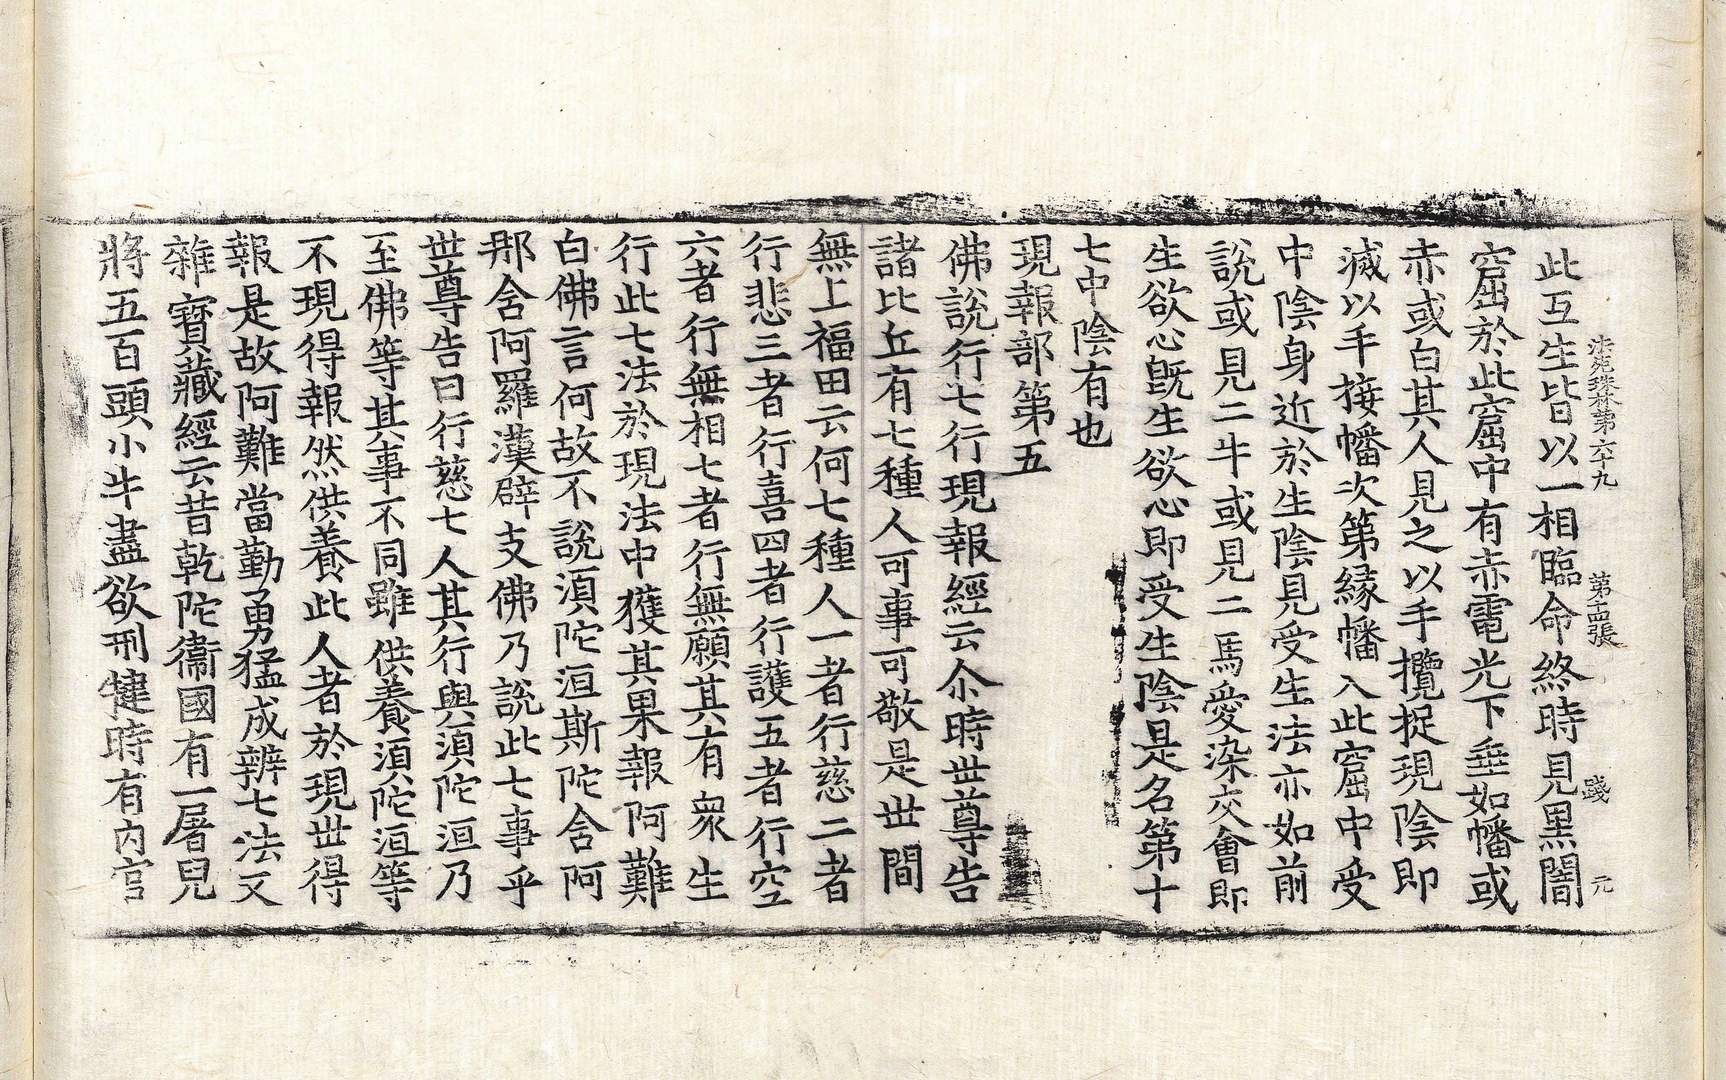 法苑珠林第六十九 第十四張 踐 元
此互生皆以一相臨命終時見黑闇
窟於此窟中有赤電光下垂如幡或
赤或白其人見之以手攬捉現陰即
滅以手接幡次第緣幡入此窟中受
中陰身近於生陰見受生法亦如前
說或見二牛或見二馬愛染交會即
生欲心旣生欲心即受生陰是名第十
七中陰有也
現報部第五
佛說行七行現報經云尒時世尊告
諸比丘有七種人可事可敬是世間
無上福田云何七種人一者行慈二者
行悲三者行喜四者行護五者行空
六者行無相七者行無願其有衆生
行此七法於現法中獲其果報阿難
白佛言何故不說湏陀洹斯陀舍阿
那舍阿羅漢辟支佛乃說此七事乎
世尊告曰行慈七人其行與湏陀洹乃
至佛等其事不同雖供養湏陀洹等
不現得報然供養此人者於現世得
報是故阿難當勤勇猛成辨七法又
雜寶藏經云昔乾陀衞國有一屠兒
將五百頭小牛盡欲刑犍時有內官